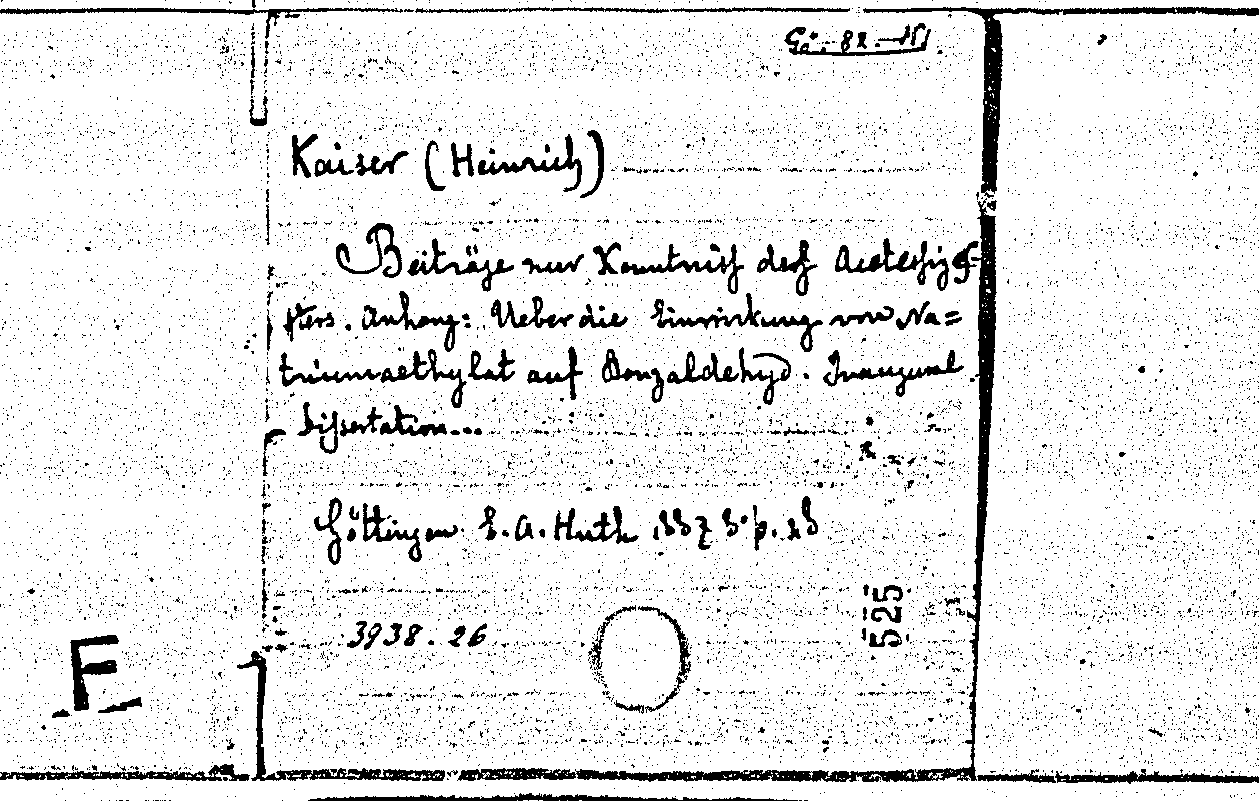 Gö. 82. N
Kaiser (Heinrich)
Beiträge zur Kenntniß deß Acetessig=
sters. Anhang: Ueber die Einwirkung von Na=
triumaethylat auf Benzaldehyd. Inaugural
Dissertation...
Göttingen E. A. Huth 1887 8° p. 28
3938.26
525
F